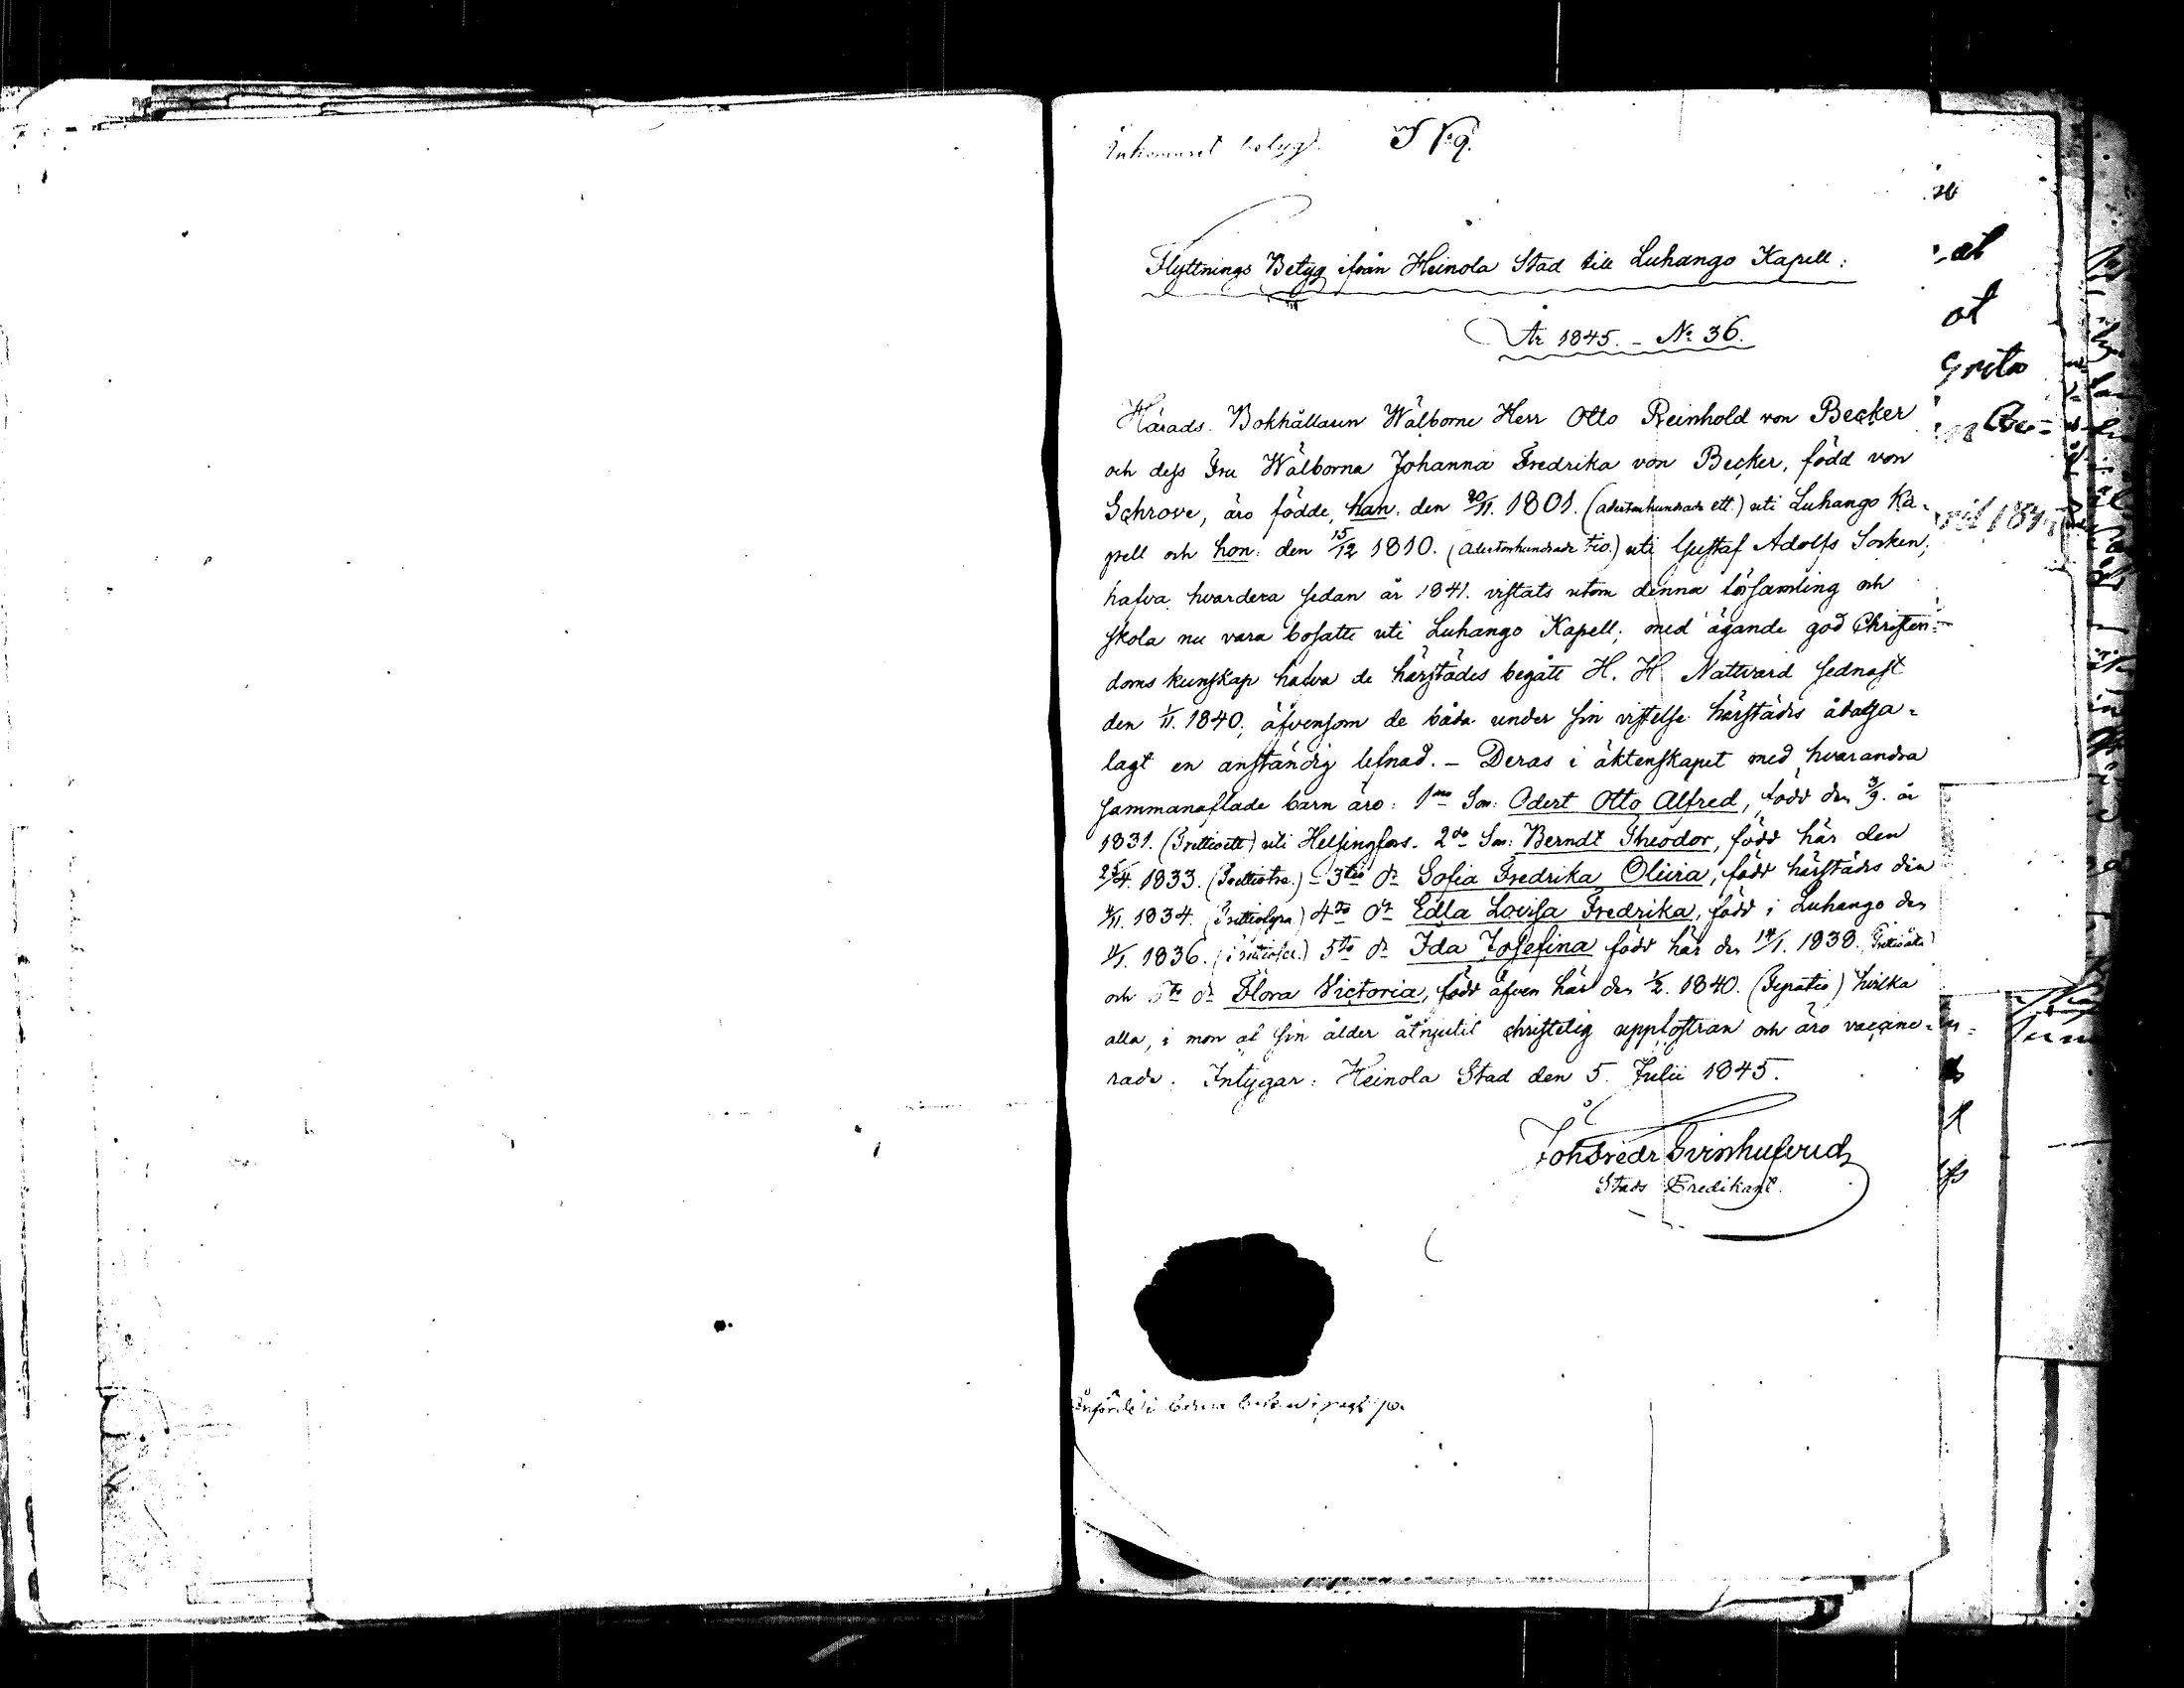 Inkommet betyg. N:o 9.
Flyttnings Betyg ifrån Heinola Stad till Luhango Kapell:
År 1845. – No 36.
Härads Bokhållaren Wälborne Herr Otto Reinhold von Becker
och dess Fru Wälborna Johanna Fredrika von Becker, född von
Schrove, äro födde, han, den 20/11. 1801. (adertonhundrade ett.) uti Luhango Ka-
pell och hon: den 15/12 1810. (adertonhundrade tio.) uti Gustaf Adolfs Socken;
hafva hvardera sedan år 1841. vistats utom denna församling och
skola nu vara bosatte uti Luhango Kapell; med ägande god Christen-
doms kunskap hafva de härstädes begått H. H. Nattvard sednast
den 1/11. 1840; äfvensom de båda under sin vistelse härstädes ådaga-
lagt en anständig lefnad. – Deras i äktenskapet med hvarandra
sammanaflade barn äro: 1mo Son: Odert Otto Alfred, född den 3/9. år
1831. (Trettioett) uti Helsingfors. 2do Son: Berndt Theodor, född här den
25/4. 1833. (Trettiotre.) – 3tio Dr Sofia Fredrika Olivia, född härstädes den
1834. (Trettiofyra) 4to Dr Edla Lovisa Fredrika, född i Luhango den
1836. (Trettiosex.) 5to Dr Ida Josefina född här den 14/1. 1838. (Trettioåtta)
och 6to Dr Flora Victoria, född äfven här den 1/2. 1840. (Fyratio) hvilka
alla, i mon af sin ålder åtnjutit christelig uppfostran och äro vaccine-
rade. Intygar: Heinola Stad den 5. Julii 1845.
Joh Fredr Svinhufvud
Stads Predikant.
at
at
Greta